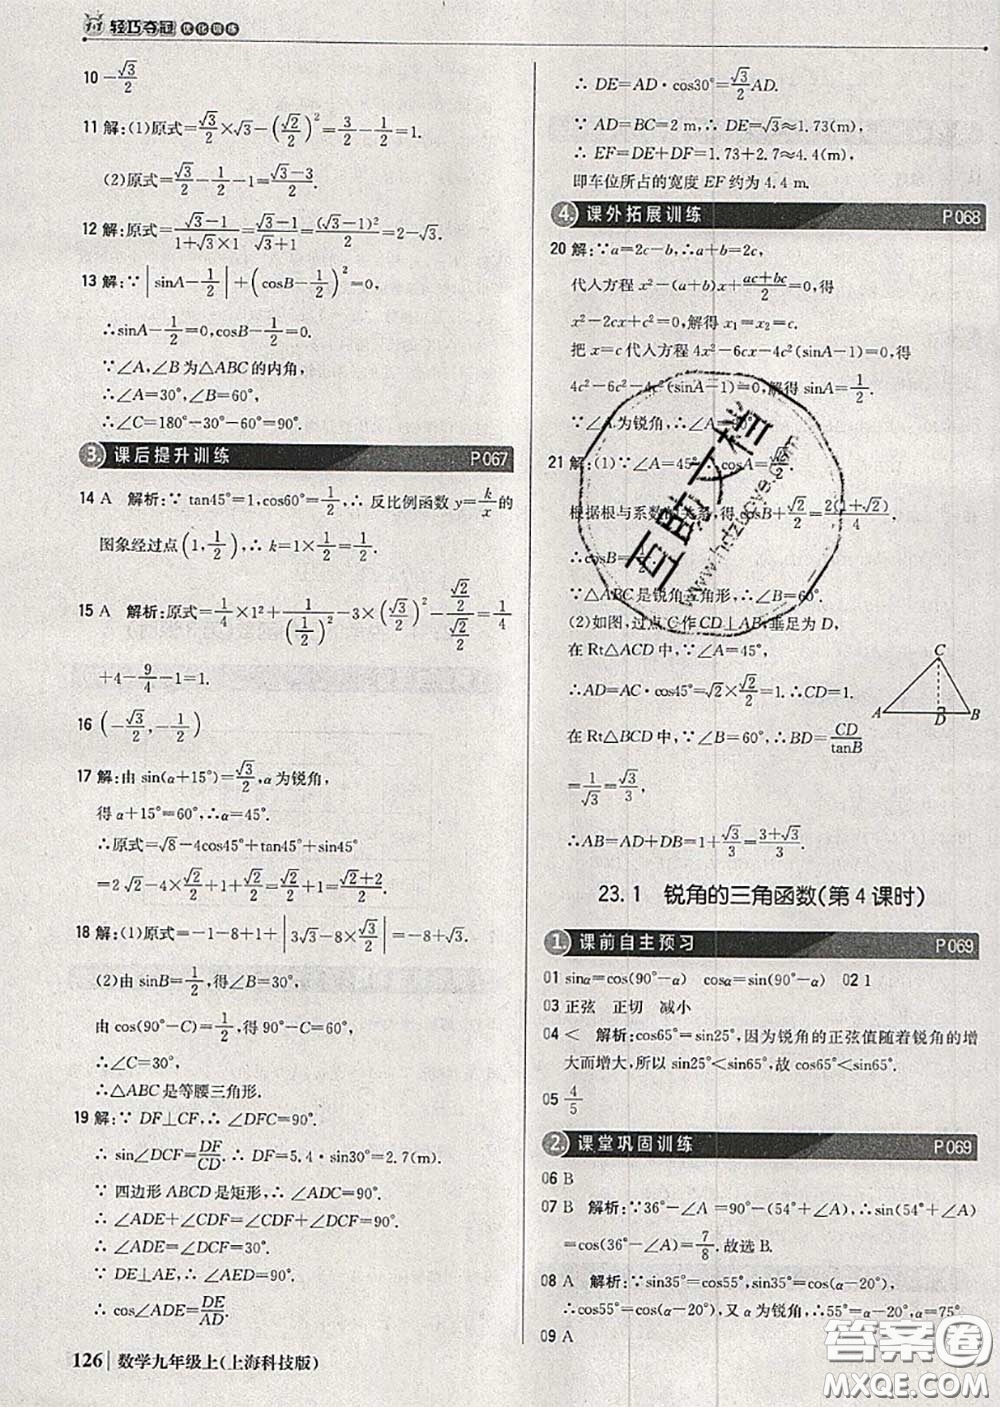 轻巧夺冠 优化训练
10 -√3/2
11 解:(1)原式=√3/2×√3-(√2/2)²=3/2-1/2=1.
(2)原式=√3/2-1/2-1=(√3-3)/2.
12 解:原式=(√3-1)/(1+√3×1)=(√3-1)/(√3+1)=(√3-1)²/2=2-√3.
13 解:∵|sinA-1/2|+(cosB-1/2)²=0,
∴sinA-1/2=0,cosB-1/2=0.
∵∠A,∠B为△ABC的内角,
∴∠A=30°,∠B=60°,
∴∠C=180°-30°-60°=90°.
3. 课后提升训练 P067
14 A 解析:∵tan45°=1,cos60°=1/2,∴反比例函数y=k/x的
图象经过点(1,1/2),∴k=1×1/2=1/2.
15 A 解析:原式=1/4×1²+1/(1/2)²-3×(√3/2)²-(√2/2)/(√2/2)=1/4
+4-9/4-1=1.
16 (-√3/2,-1/2)
17 解:由sin(α+15°)=√3/2,α为锐角,
得α+15°=60°,∴α=45°.
∴原式=√8-4cos45°+tan45°+sin45°
=2√2-4×√2/2+1+√2/2=√2/2+1=(√2+2)/2.
18 解:(1)原式=-1-8+1+|3√3-8×√3/2|=-8+√3.
(2)由sinB=1/2,得∠B=30°,
由cos(90°-C)=1/2,得90°-∠C=60°.
∴∠C=30°,
∴△ABC是等腰三角形.
19 解:∵DF⊥CF,∴∠DFC=90°.
∴sin∠DCF=DF/CD.∴DF=5.4·sin30°=2.7(m).
∵四边形ABCD是矩形,∴∠ADC=90°.
∴∠ADE+∠CDF=∠CDF+∠DCF=90°.
∴∠ADE=∠DCF=30°.
∵DE⊥AE,∴∠AED=90°.
∴cos∠ADE=DE/AD.
126 数学九年级上(上海科技版)
∴DE=AD·cos30°=√3/2AD.
∵AD=BC=2 m,∴DE=√3≈1.73(m)
∴EF=DE+DF=1.73+2.7≈4.4(m),
即车位所占的宽度EF约为4.4 m.
4. 课外拓展训练 P068
20 解:∵a=2c-b,∴a+b=2c,
代入方程x²-(a+b)x+(ac+bc)/2=0,得
x²-2cx+c²=0,解得x₁=x₂=c.
把x=c代入方程4x²-6cx-4c²(sinA-1)=0,得
4c²-6c²-4c²(sinA-1)=0,解得sinA=1/2.
∵∠A为锐角,∴∠A=30°.
21 解:(1)∵∠A=45°,∴cosA=√2/2.
根据根与系数的关系,得cosB+√2/2=2(1+√2)/4,
∴cosB=1/2.
∵△ABC是锐角三角形,∴∠B=60°.
(2)如图,过点C作CD⊥AB,垂足为D,
在Rt△ACD中,∵∠A=45°,
∴AD=AC·cos45°=√2×√2/2=1.∴CD=AD=1.
在Rt△BCD中,∵∠B=60°,∴BD=CD/tanB
=1/√3=√3/3,
∴AB=AD+DB=1+√3/3=(3+√3)/3.
C
A D B
23.1 锐角的三角函数(第4课时)
1. 课前自主预习 P069
01 sinα=cos(90°-α) cosα=sin(90°-α) 02 1
03 正弦 正切 减小
04 < 解析:cos65°=sin25°,因为锐角的正弦值随着锐角的增
大而增大,所以sin25°<sin65°,故cos65°<sin65°.
05 4/5
2. 课堂巩固训练 P069
06 B
07 B 解析:∵36°-∠A=90°-(54°+∠A),∴sin(54°+∠A)
=cos(36°-∠A)=7/8.故选B.
08 A 解析:∵sin35°=cos55°,sin35°=cos(α-20°),
∴cos55°=cos(α-20°),又α为锐角,∴55°=α-20°,α=75°.
09 A
互助文档
www.hdzuoye.com
答案圈
MXQE.COM